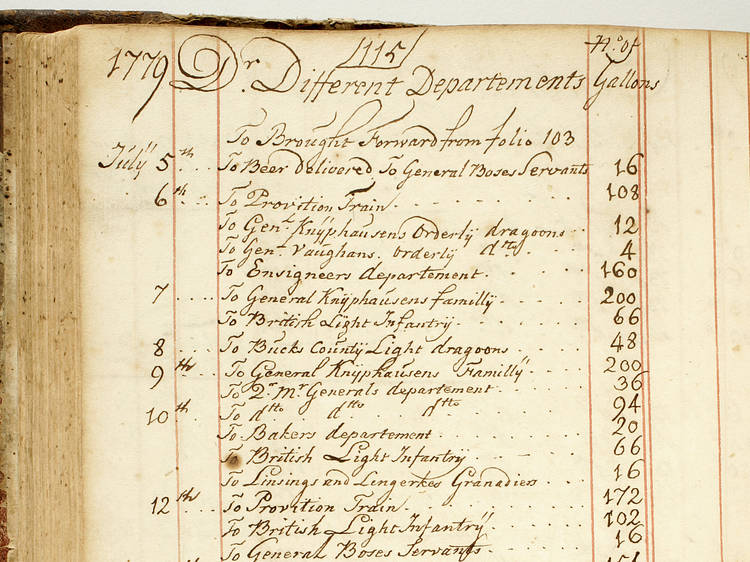 /115/
N.o of
1779 Dr. Different Departements Gallons
To Brought Forward from folio 103
Julÿ 5th To Beer delivered To General Boses Servants 16
6th To Provition Train 108
To Genl Knÿphausens Orderlÿ dragoons 12
To Genl Vaughans orderlÿ dtto 4
To Ensigneers departement 160
7 To General Knÿphausens familly 200
To British Light Infantry 66
8 To Bucks County Light dragoons 48
9th To General Knÿphausens Famillÿ 200
To 2r Mr Generals departement 36
10th To dtto dtto dtto 94
To Bakers departement 20
To British Light Infantry 66
To Linsings and Lengerkes Granadiers 16
12th To Provition Train 172
To British Light Infantrÿ 102
To General Boses Servants 16